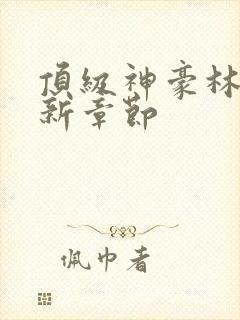 頂級神豪林
新章節
佩巾者